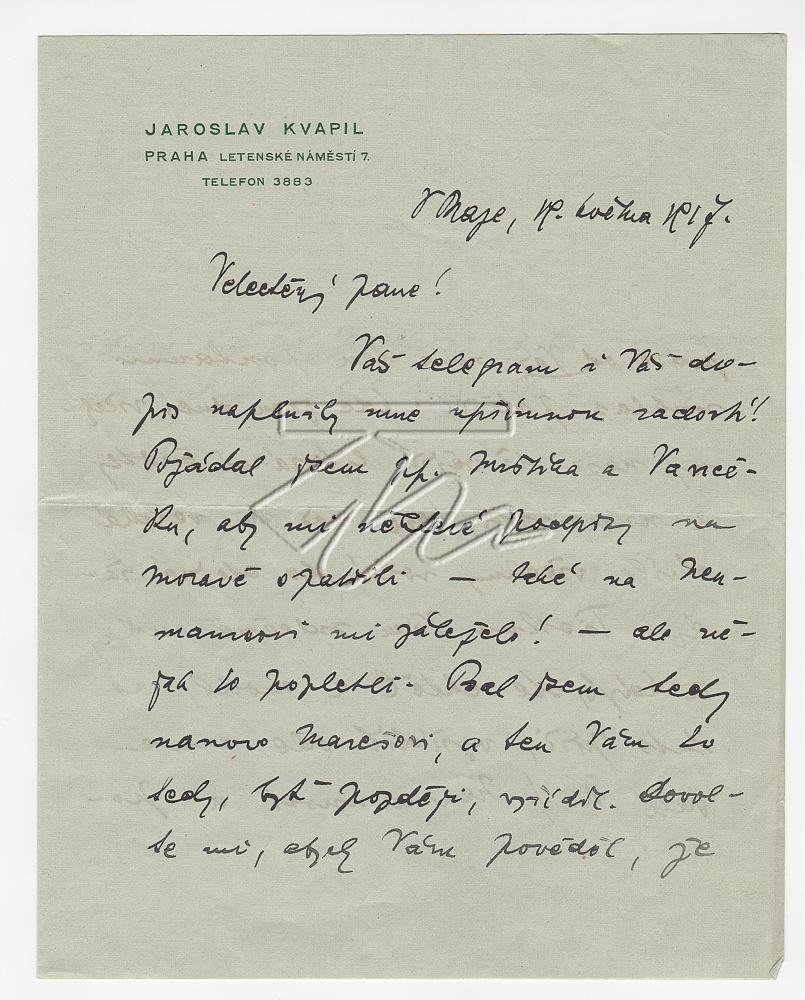 JAROSLAV KVAPIL
PRAHA LETENSKÉ NÁMĚSTÍ 7.
TELEFON 3883
V Praze, 19. května 1917.
Velectěný pane!
Váš telegram i Váš do-
pis naplnily mne upřímnou radostí!
Požádal jsem pp. Mrštíka a Vaňč-
ka, aby mi některé podpisy na
Moravě opatřili — také na Neu-
mannovi mi záleželo! — ale ně-
jak to popletli. Psal jsem tedy
nanovo Marešovi, a ten Vám to
tedy, byť později, vyřídil. Dovol-
te mi, abych Vám pověděl, že